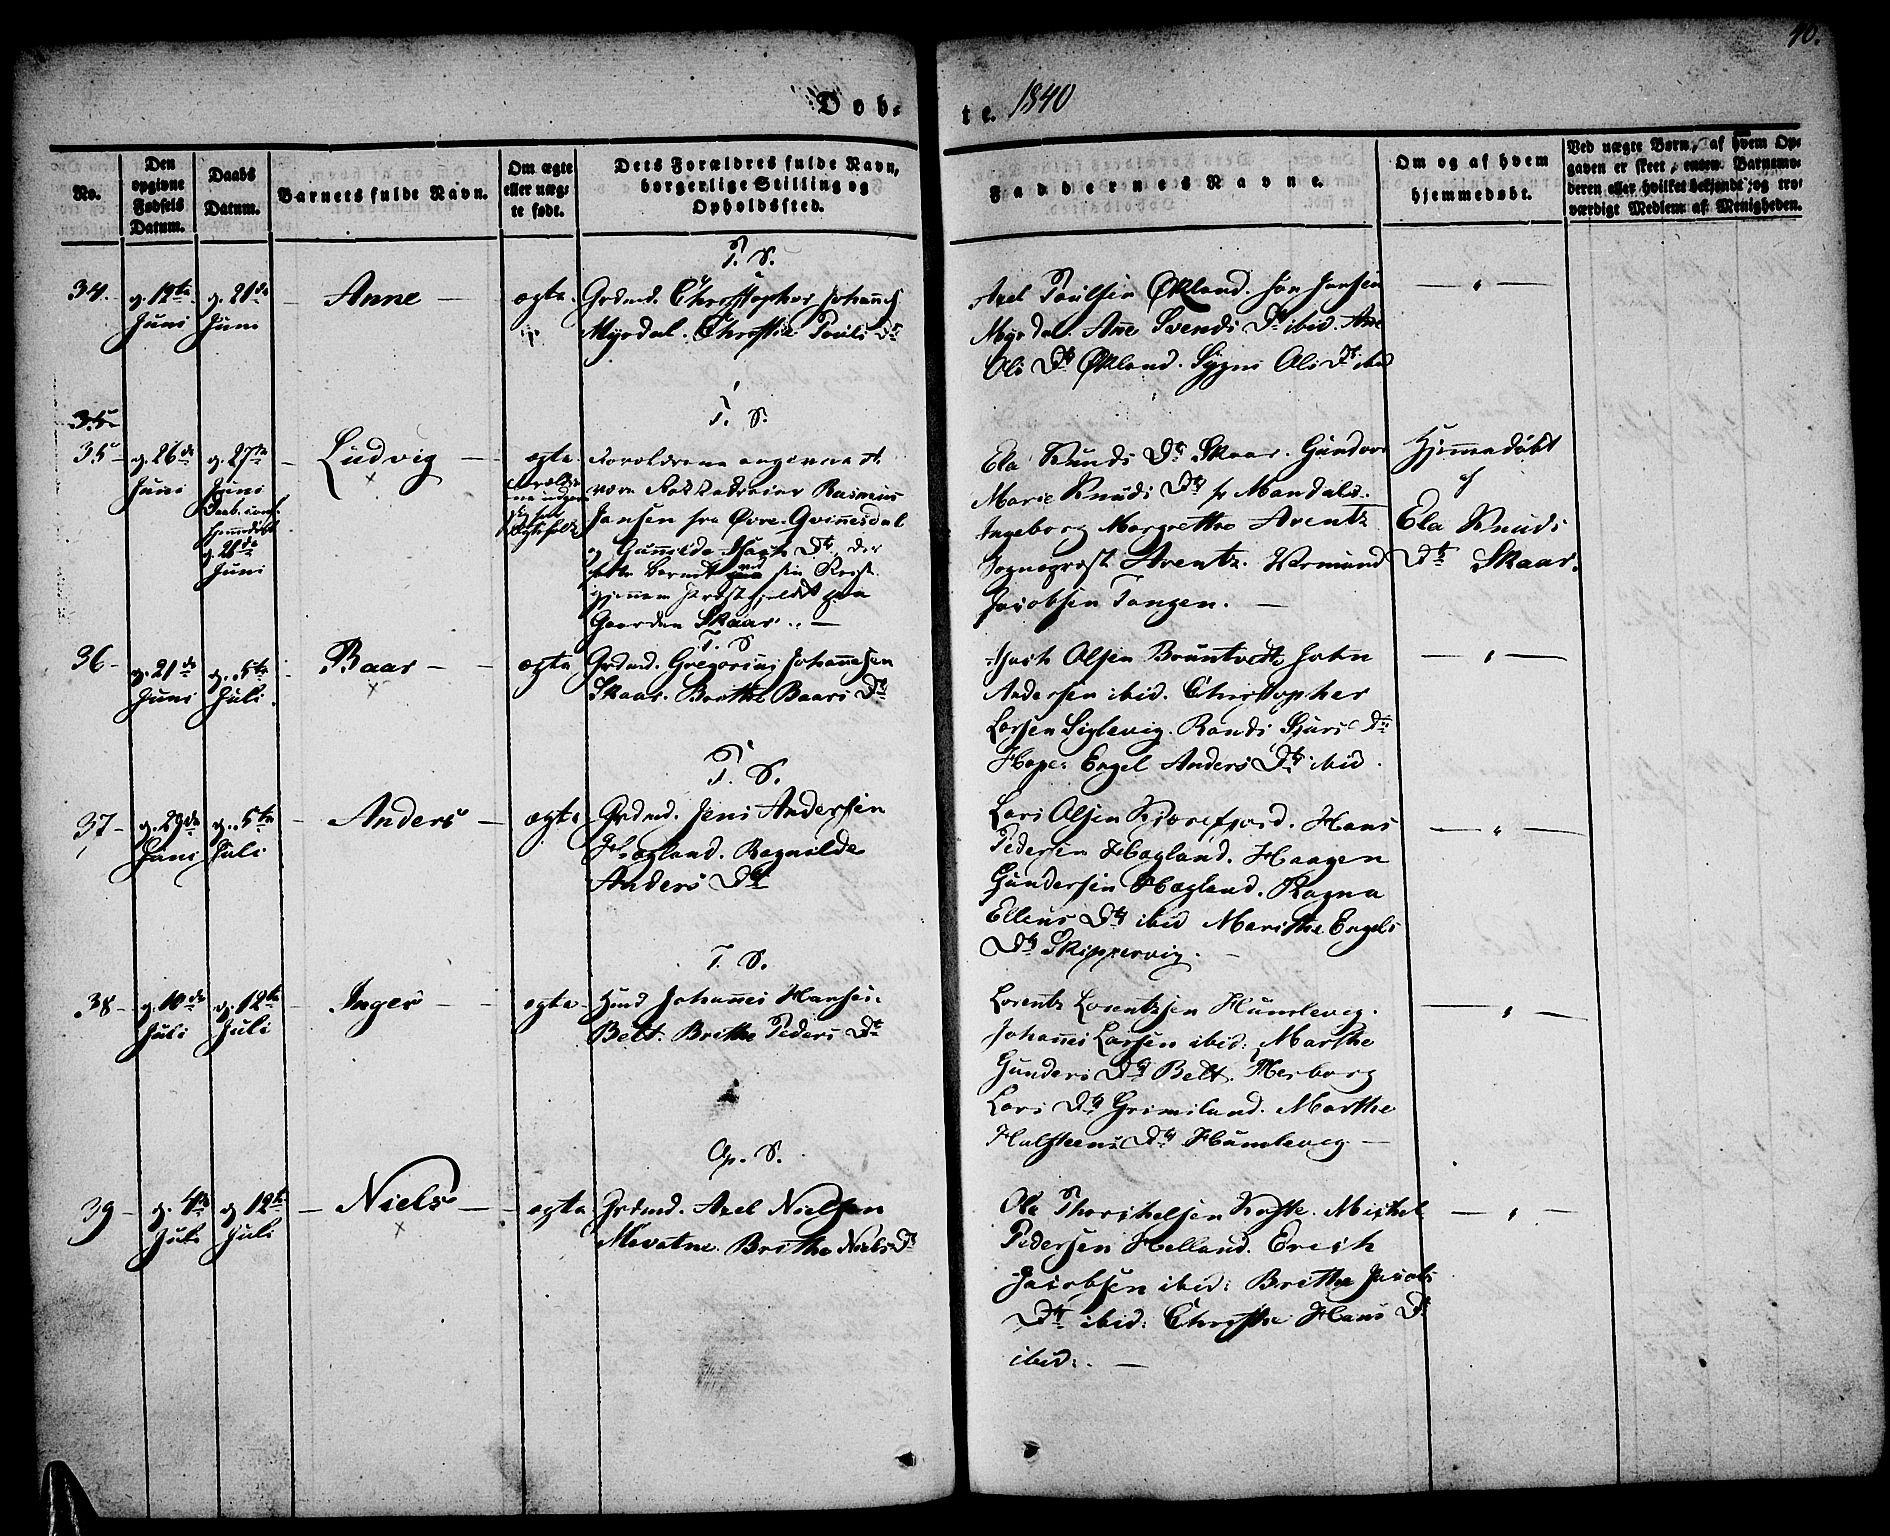 40.
Døb-
te. 1840
No.
Den opgivne Fødsels Datum.
Daabs Datum.
Barnets fulde Navn.
Om ægte eller uæg-te født.
Dets Forældres fulde Navn, borgerlige Stilling og Opholdssted.
Faddernes Navne.
Om og af hvem hjemmedøbt.
Ved uægte Børn, af hvem Op-
gaven er skeet, enten Barnemo-
deren eller hvilket bekjendt og tro-
værdige Medlem af Menigheden.
T. S.
34. d. 12te Juni
d. 21de Juni
Anne
ægte.
Grdmd. Christopher Johanns
Myrdal. Christie Pouls Dtr
Axel Poulsen Økland. Jon Jonsen
Myrdal. Anne Svends Dtr ibid. Ane
Ols Dtr Økland. Sygni Ols Dtr ibid
T. S.
35
35 d. 26de Juni
d. 27de
Juni
Daab. conf.
hjemmedøbt
d. 28de
Juni
Ludvig
ægte.
Forældrene angivne at
være Rasmus
Jansen fra Øvre-Qvinnesdal
og Gunnilde Dtr, der
sin Reise
gjennem Præstegjeldet paa
Gaarden Skaar.
Ela Knuds Dtr Skaar. Gundvor
Marie Knuds Dtr fr Mandal.
Ingeborg Margrethe Arentz
Sognepræst Arentz. Vermund
Jacobsen Tangen.
Hjemmedøbt
af
Ela Knuds
Dtr Skaar.
T. S
36 d. 21de Juni
d. 5te Juli
Baar
ægte
Grdmd. Gregorius Johannesen
Skaar. Berthe Baars Dtr
Olsen Bruntvedt John
Andersen ibid. Christopher
Larsen Siglevig. Randi Sjurs Dtr
Hope. Engel Anders Dtr ibid.
T. S.
37 d. 29de Juni
d. 5te Juli
Anders
ægte
Grdmd. Jens Andersen
Hægland. Ragnilde
Anders Dtr
Lars Olsen Kjorefjord. Hans
Pedersen Hægland. Haagen
Gundersen Hægland. Ragna
Ellens Dtr ibid Marithe Engels
Dtr Skippervig.
T. S.
38 d. 10de Juli
d. 12te Juli
Inger
ægte
Hmd Johannes Hansen
Belt. Brithe Peders Dtr
Lorentz Lorentzsen Humlevig.
Johannes Larsen ibid: Marthe
Gunders Dtr Belt. Herborg
Lars Dtr Grimsland. Marthe
Halsteens Dtr Humlevig
Op. S.
39 d. 4de Juli
d. 12te Juli
Niels
ægte
Grdmd. Axel Nielsen
Mevatne. Brithe Niels Dtr
Ole Thorkelsen Koste. Michel
Pedersen Helland. Erich
Jacobsen ibid: Brithe Jacobs
Dtr ibid: Christie Hans Dtr
ibid: